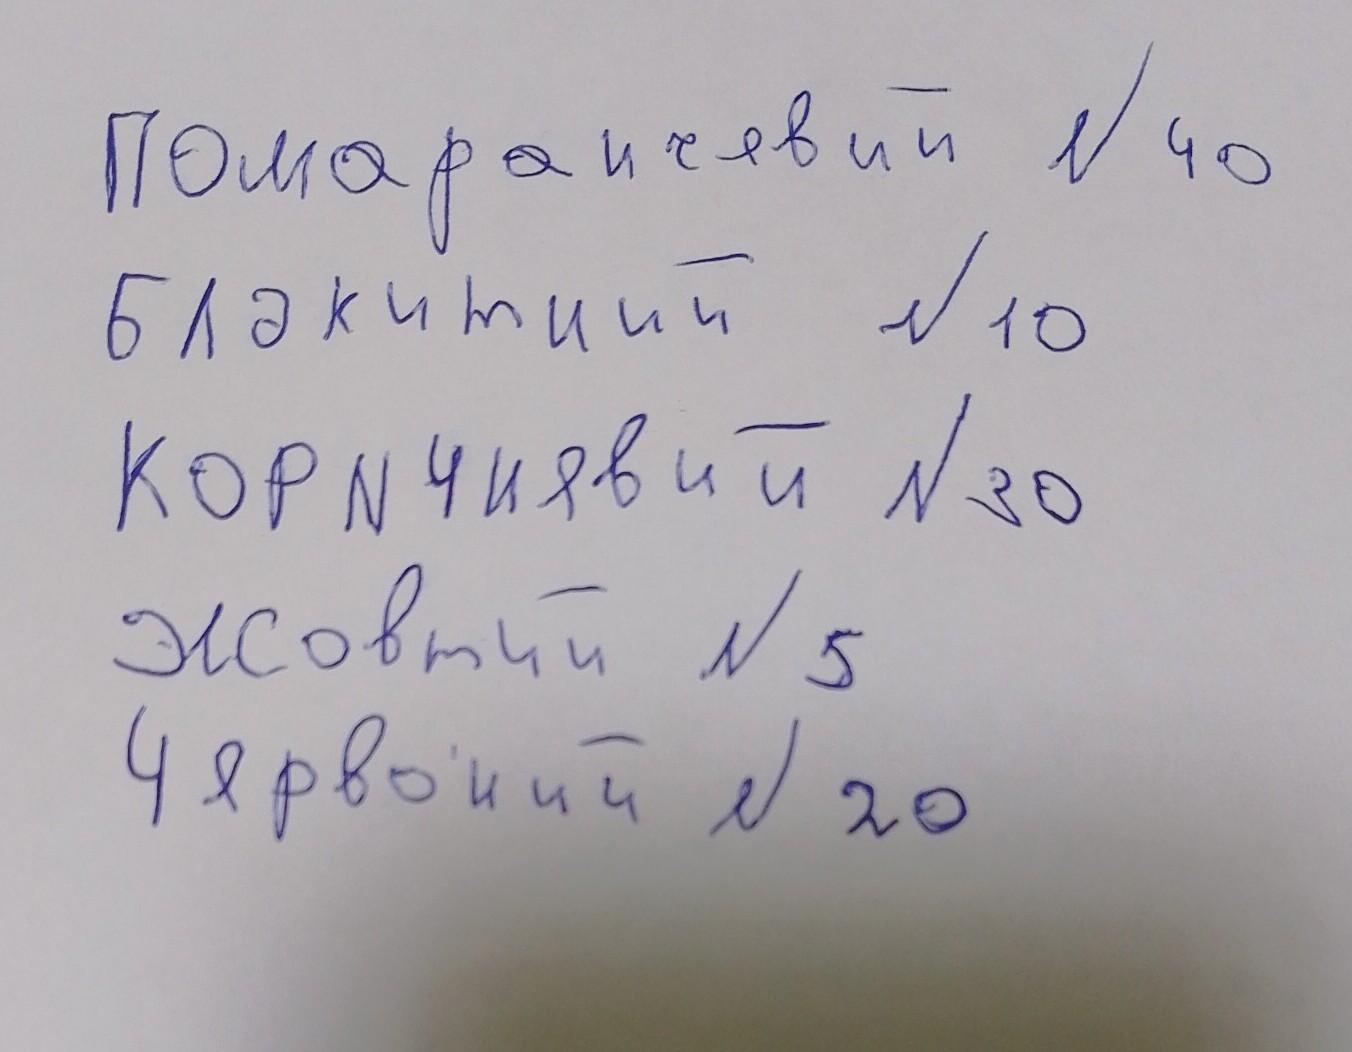 Помаранчевий № 40
Блакитний № 10
Коричневий № 30
Жовтий № 5
Червоний № 20